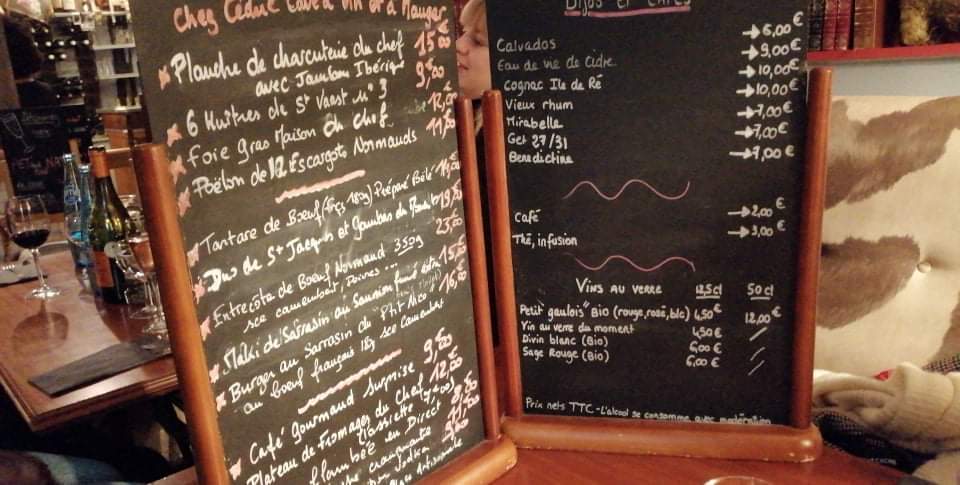 Chez Cédric Cave à Vin et à Manger
Planche de charcuterie du chef 15,00
avec Jambon Ibérique
6 Huîtres de St Vaast n° 3 9,00
Foie gras Maison du Chef 12,00
Poêlon de 12 Escargots Normands 11,00
Tartare de Boeuf (Frçs 180g) Préparé
Duo de St Jacques et Gambas 19,50
Entrecôte de Boeuf Normand 350g 23,00
sce camembert, Poivre ...
Maki de Sarrasin au Saumon fumé 15,50
Burger au Sarrasin du P'tit Nico 16,00
au boeuf français 180g sce Camembert
Café Gourmand Surprise 9,00
Plateau de Fromages du Chef 12,00
l'assiette
flambée en Direct
Bijos et Cafés
Calvados → 6,00€
Eau de vie de Cidre → 9,00€
Cognac Ile de Ré → 10,00€
Vieux rhum → 10,00€
Mirabelle → 7,00€
Get 27/31 → 7,00€
Benedictine → 7,00€
Café → 2,00€
Thé, infusion → 3,00€
Vins au verre 12,5cl 50cl
Petit gaulois "Bio (rouge, rosé, blc) 4,50€ 12,00€
Vin au verre du moment 4,50€
Divin blanc (Bio) 6,00€
Sage Rouge (Bio) 6,00€
Prix nets TTC - L'alcool se consomme avec modération